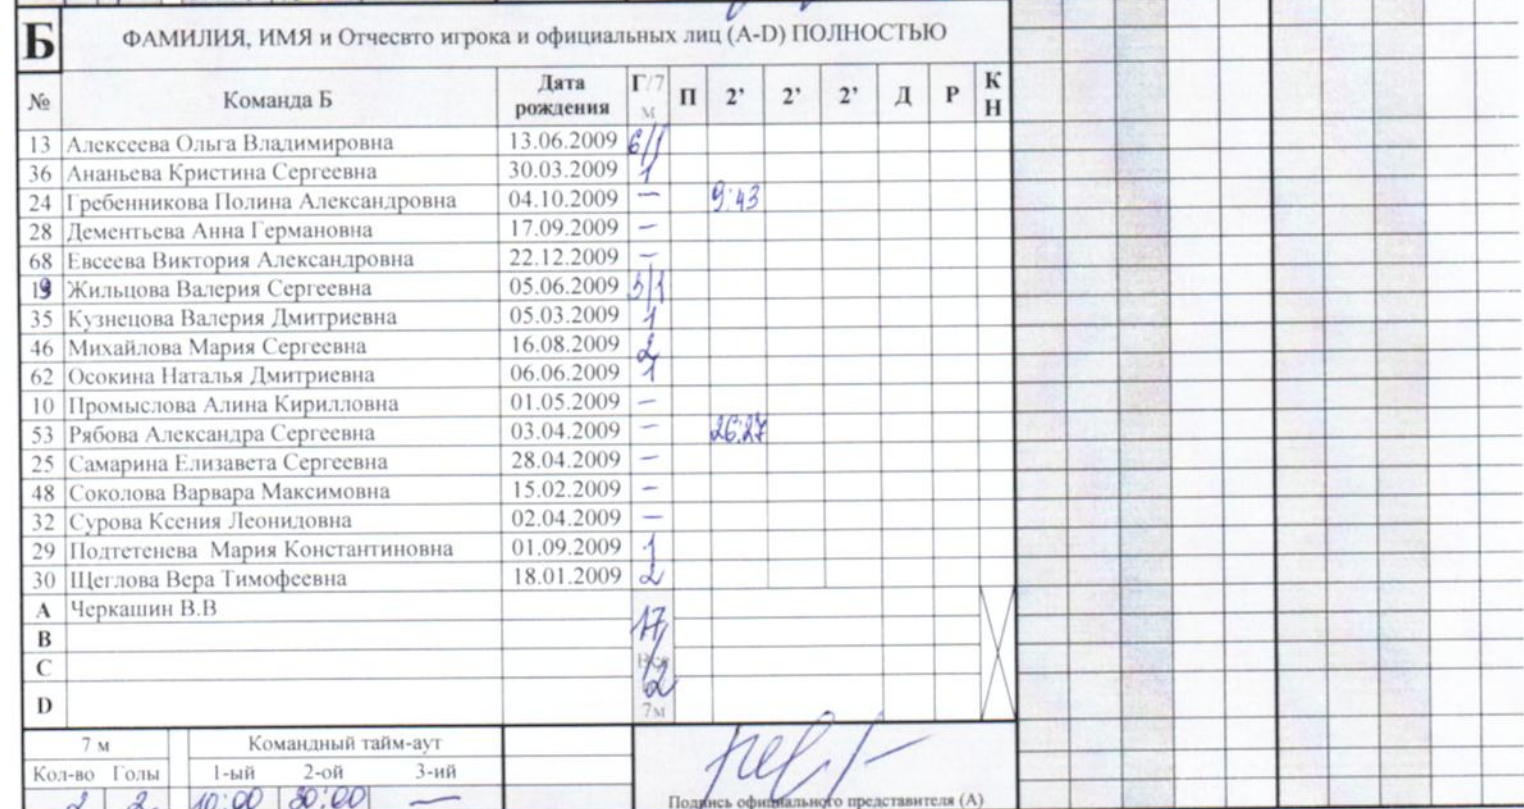 Б ФАМИЛИЯ, ИМЯ и Отчесвто игрока и официальных лиц (A-D) ПОЛНОСТЬЮ
№ Команда Б Дата рождения Г/7 м П 2' 2' 2' Д Р К Н
13 Алексеева Ольга Владимировна 13.06.2009 6/1
36 Ананьева Кристина Сергеевна 30.03.2009 1
24 Гребенникова Полина Александровна 04.10.2009 — 9:43
28 Дементьева Анна Германовна 17.09.2009 —
68 Евсеева Виктория Александровна 22.12.2009 —
19 Жильцова Валерия Сергеевна 05.06.2009 3/1
35 Кузнецова Валерия Дмитриевна 05.03.2009 1
46 Михайлова Мария Сергеевна 16.08.2009 2
62 Осокина Наталья Дмитриевна 06.06.2009 1
10 Промыслова Алина Кирилловна 01.05.2009 —
53 Рябова Александра Сергеевна 03.04.2009 — 26:27
25 Самарина Елизавета Сергеевна 28.04.2009 —
48 Соколова Варвара Максимовна 15.02.2009 —
32 Сурова Ксения Леонидовна 02.04.2009 —
29 Подтетенева Мария Константиновна 01.09.2009 1
30 Щеглова Вера Тимофеевна 18.01.2009 2
A Черкашин В.В 17/
B
C 2
D 7м
7 м Командный тайм-аут
Кол-во Голы 1-ый 2-ой 3-ий
2 2 10:00 30:00 —
Подпись официального представителя (А)